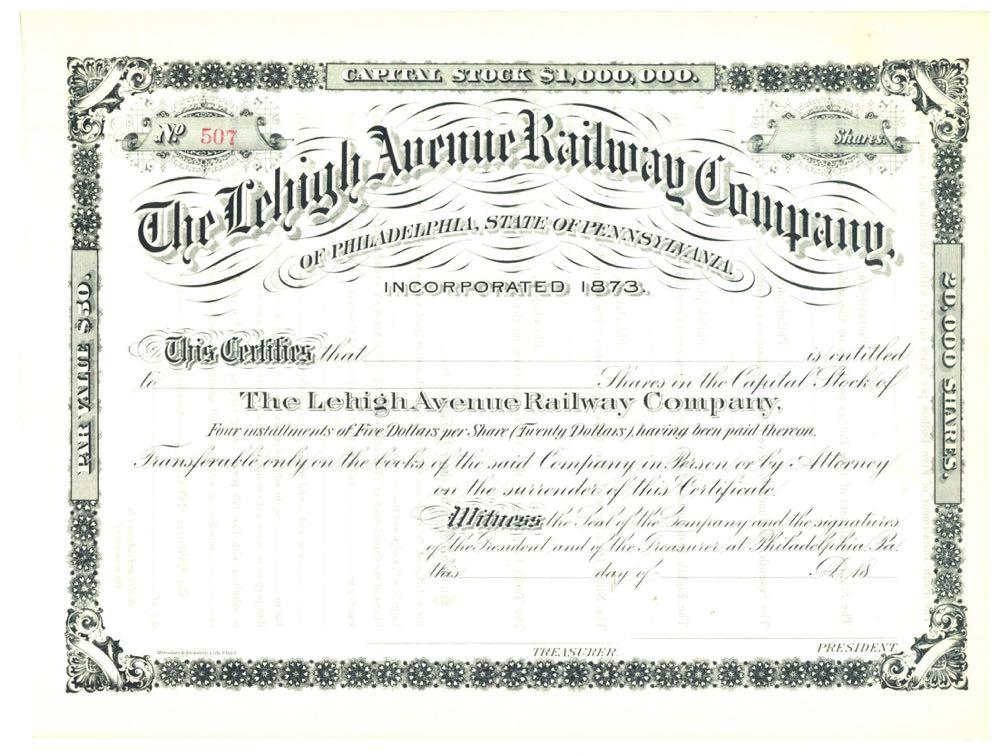 CAPITAL STOCK $1,000,000.
No. 507
Shares.
The Lehigh Avenue Railway Company,
OF PHILADELPHIA, STATE OF PENNSYLVANIA.
INCORPORATED 1873.
PAR VALUE $50.
20,000 SHARES.
This Certifies that is entitled
to Shares in the Capital Stock of
The Lehigh Avenue Railway Company,
Four installments of Five Dollars per Share (Twenty Dollars), having been paid thereon.
Transferable only on the books of the said Company in Person or by Attorney
on the surrender of this Certificate.
Witness the Seal of the Company and the signatures
of the President and of the Treasurer at Philadelphia, Pa.
this day of A.D. 18
TREASURER.
PRESIDENT.